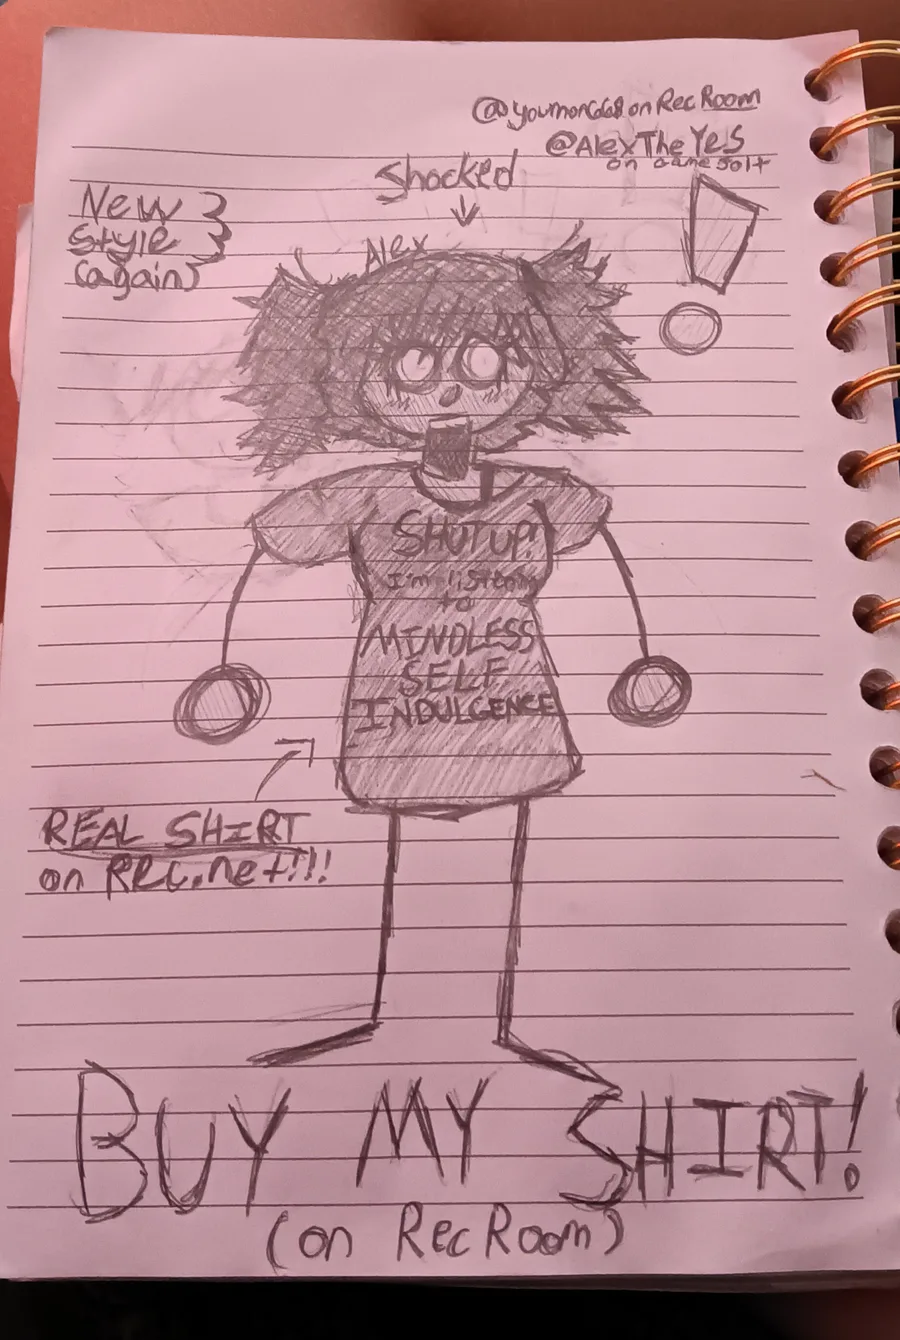 on RecRoom
@AlexTheYes
on Gamejolt
Shocked
New
Style
(again)
Alex
SHUT UP!
I'm listening
to
MINDLESS
SELF
INDULGENCE
REAL SHIRT
on Rec.net!!!
BUY MY SHIRT!
(on RecRoom)